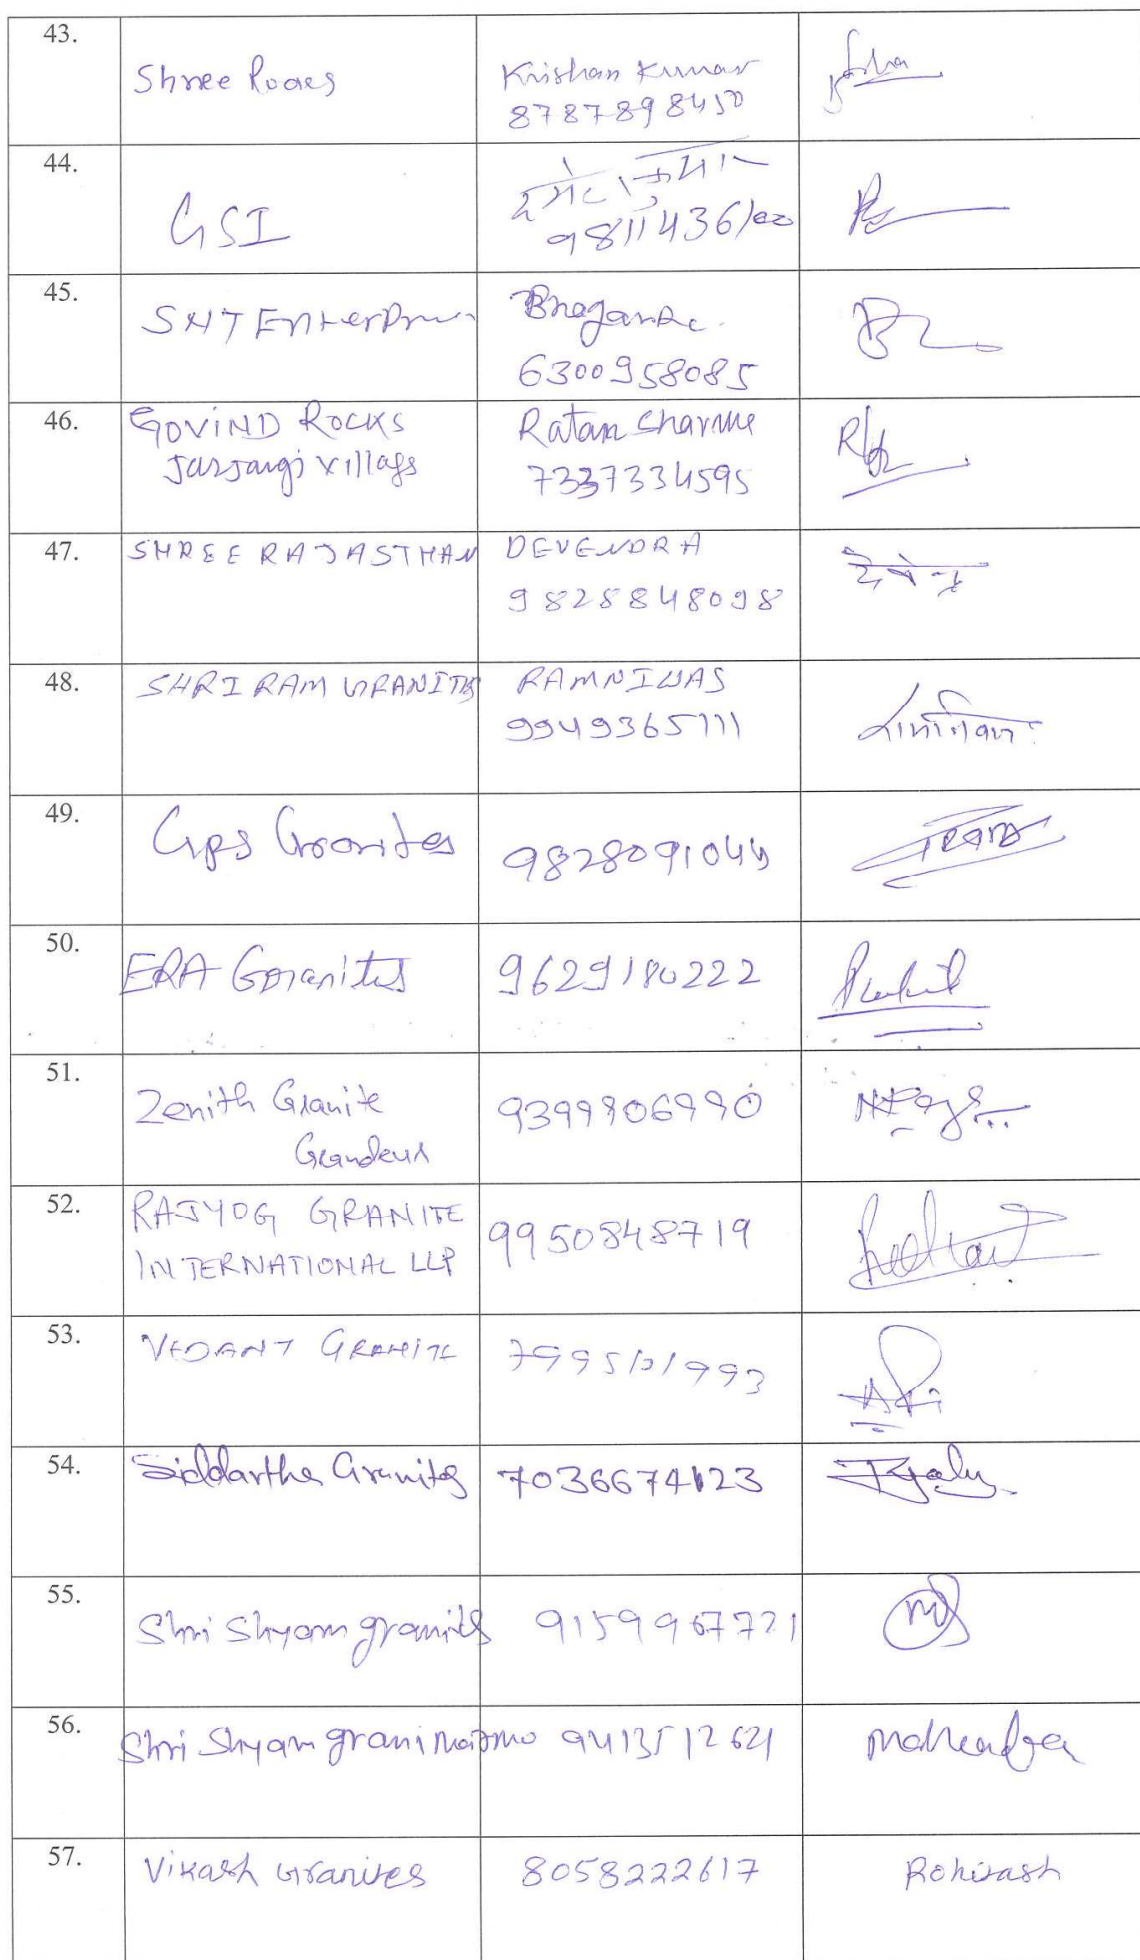 43.
Shree Rocks
Krishan Kumar
8787898450
44.
GSI
कुमार
9811436100
45.
SHT Enterpri
6300958085
46.
GOVIND ROCKS
Jarjangi village
Ratan Sharma
7337334595
47.
SHREE RAJASTHAN
DEVENDRA
9828848098
देवेन्द्र
48.
SHRI RAM GRANITES
RAMNIWAS
9949365111
रामनिवास
49.
Gps Granites
9828091044
50.
ERA Granites
9629180222
51.
Zenith Granite
Grandeur
9399906990
52.
RAJYOG GRANITE
INTERNATIONAL LLP
9950848719
53.
VEDANT GRANITE
7995101993
54.
Siddartha Granites
7036674123
55.
Shri Shyam granites
9159967721
56.
Shri Shyam grani
9413512621
Mahendra
57.
Vikash Granites
8058222617
Rohitash